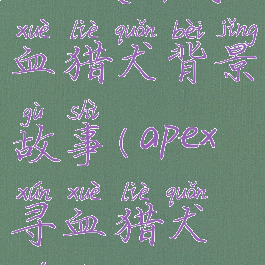 xuè liè quǎn bèi jǐng
血猎犬背景
gù shì
故事(apex
xún xuè liè quǎn
寻血猎犬